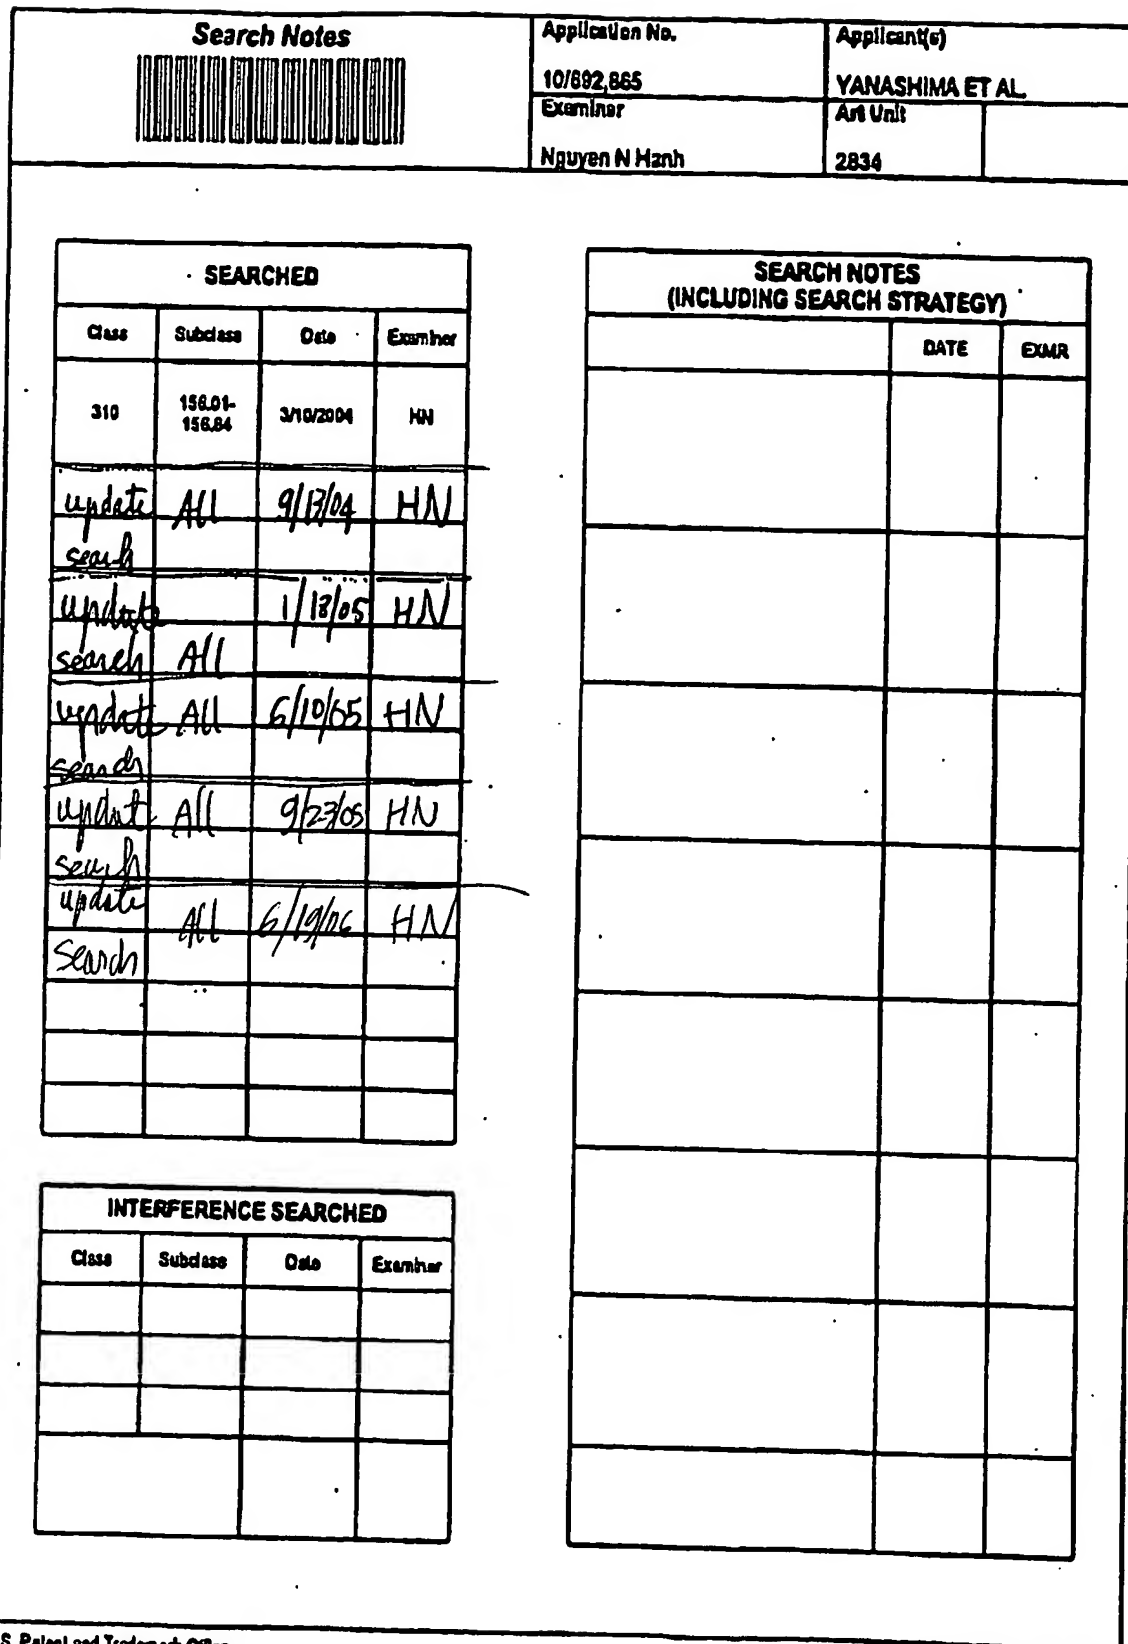 Search Notes
Application No.
10/692,865
Applicant(s)
YANASHIMA ET AL.
Examiner
Nguyen N Hanh
Art Unit
2834
SEARCHED
Class Subclass Date Examiner
310 156.01-156.84 3/10/2004 HN
update search All 9/13/04 HN
update search All 1/18/05 HN
update search All 6/10/05 HN
update search All 9/23/05 HN
update search All 6/19/06 HN
INTERFERENCE SEARCHED
Class Subclass Date Examiner
SEARCH NOTES
(INCLUDING SEARCH STRATEGY)
DATE EXMR
S. Patent and Trademark Office